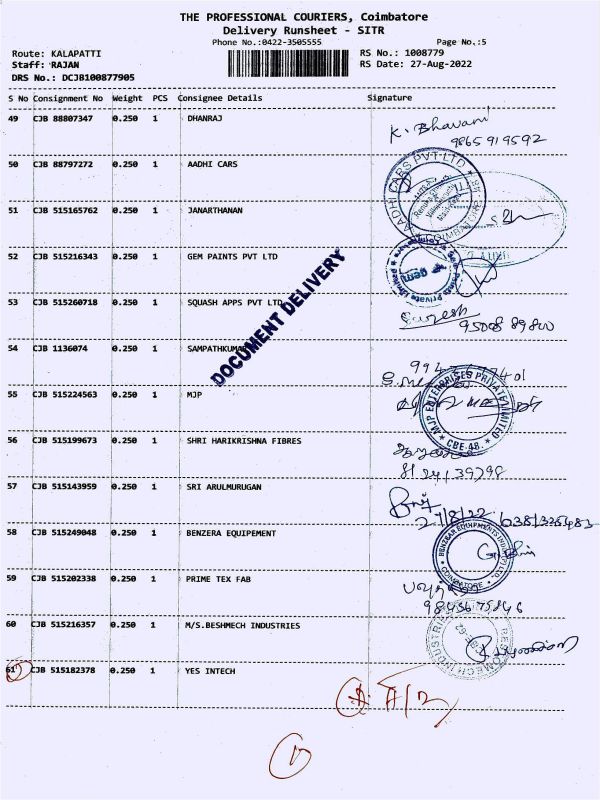 THE PROFESSIONAL COURIERS, Coimbatore
Delivery Runsheet - SITR
Phone No.:0422-3505555 Page No.:5
Route: KALAPATTI RS No.: 1008779
Staff: RAJAN RS Date: 27-Aug-2022
DRS No.: DCJB100877905
S No Consignment No Weight PCS Consignee Details Signature
49 CJB 88807347 0.250 1 DHANRAJ K. Bhavani
9865919592
50 CJB 88797272 0.250 1 AADHI CARS
AADHI CARS PVT LTD
51 CJB 515165762 0.250 1 JANARTHANAN
52 CJB 515216343 0.250 1 GEM PAINTS PVT LTD
gem
53 CJB 515260718 0.250 1 SQUASH APPS PVT LTD Suresh
DOCUMENT DELIVERY
54 CJB 1136074 0.250 1 SAMPATHKUMAR
55 CJB 515224563 0.250 1 MJP
MJP ENTERPRISES PRIVATE LIMITED
CBE-48.
56 CJB 515199673 0.250 1 SHRI HARIKRISHNA FIBRES
57 CJB 515143959 0.250 1 SRI ARULMURUGAN
27/8/22
58 CJB 515249048 0.250 1 BENZERA EQUIPEMENT
COIMBATORE
59 CJB 515202338 0.250 1 PRIME TEX FAB
60 CJB 515216357 0.250 1 M/S.BESHMECH INDUSTRIES
61 CJB 515182378 0.250 1 YES INTECH